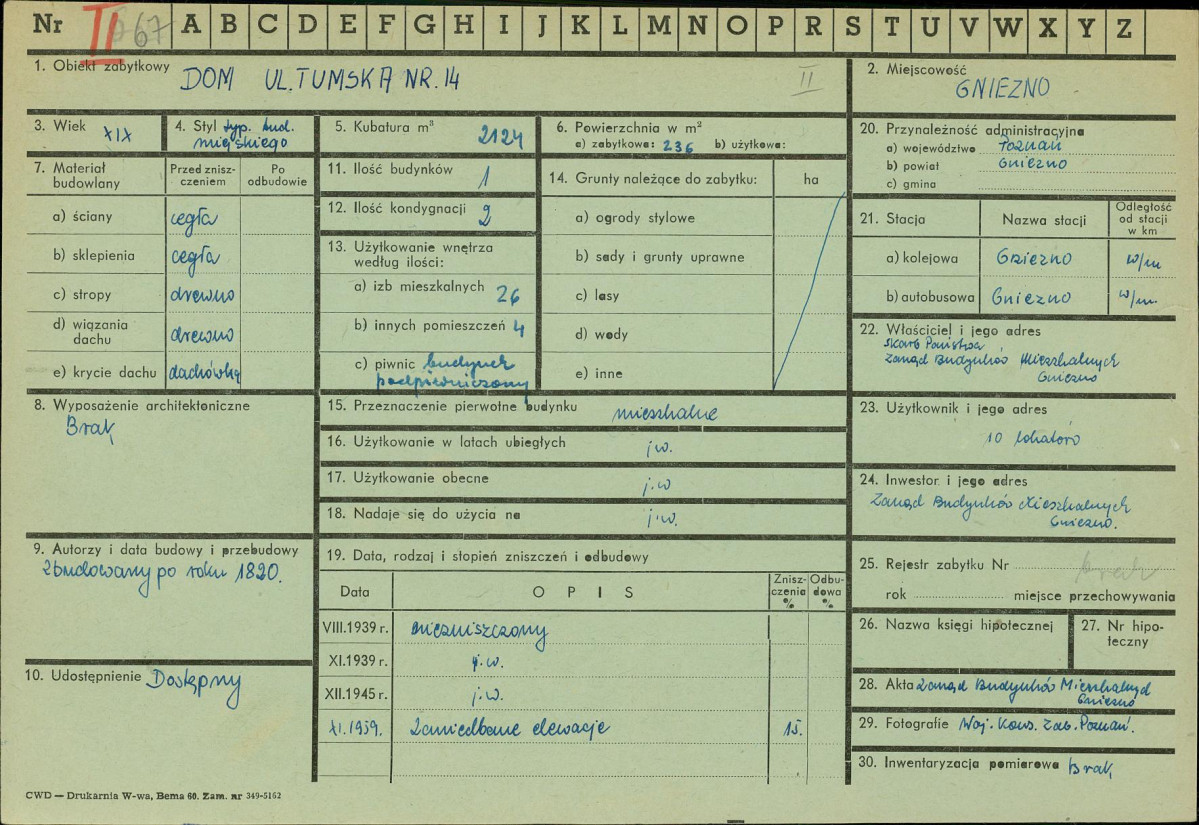 Nr II 67 A B C D E F G H I J K L M N O P R S T U V W X Y Z
1. Obiekt zabytkowy DOM UL. TUMSKA NR. 14 II
2. Miejscowość
GNIEZNO
3. Wiek XIX
4. Styl typ. bud.
miejskiego
5. Kubatura m³ 2124
6. Powierzchnia w m²
a) zabytkowa: 236 b) użytkowa:
20. Przynależność administracyjna
a) województwo Poznań
b) powiat Gniezno
c) gmina
7. Materiał budowlany
Przed znisz-czeniem
Po odbudowie
a) ściany cegła
b) sklepienia cegła
c) stropy drewno
d) wiązania dachu drewno
e) krycie dachu dachówka
11. Ilość budynków 1
12. Ilość kondygnacji 2
13. Użytkowanie wnętrza
według ilości:
a) izb mieszkalnych 26
b) innych pomieszczeń 4
c) piwnic budynek
podpiwniczony
14. Grunty należące do zabytku: ha
a) ogrody stylowe
b) sady i grunty uprawne
c) lasy
d) wody
e) inne
21. Stacja Nazwa stacji Odległość od stacji w km
a) kolejowa Gniezno w/m
b) autobusowa Gniezno w/m.
22. Właściciel i jego adres
Skarb Państwa
Zarząd Budynków Mieszkalnych
Gniezno
8. Wyposażenie architektoniczne
Brak
15. Przeznaczenie pierwotne budynku mieszkalne
16. Użytkowanie w latach ubiegłych j.w.
17. Użytkowanie obecne j.w
18. Nadaje się do użycia na j.w.
23. Użytkownik i jego adres
10 lokatorów
24. Inwestor i jego adres
Zarząd Budynków Mieszkalnych
Gniezno.
9. Autorzy i data budowy i przebudowy
Zbudowany po roku 1820.
10. Udostępnienie Dostępny
19. Data, rodzaj i stopień zniszczeń i odbudowy
Data OPIS Znisz-czenia % Odbu-dowa %
VIII.1939 r. niezniszczony
XI.1939 r. j.w.
XII.1945 r. j.w.
XI.1959. Zaniedbane elewacje 15.
25. Rejestr zabytku Nr brak
rok miejsce przechowywania
26. Nazwa księgi hipotecznej
27. Nr hipo-teczny
28. Akta Zarząd Budynków Mieszkalnych
Gniezno
29. Fotografie Woj. Kons. Zab. Poznań.
30. Inwentaryzacja pomiarowa Brak
CWD — Drukarnia W-wa, Bema 60. Zam. nr 349-5162